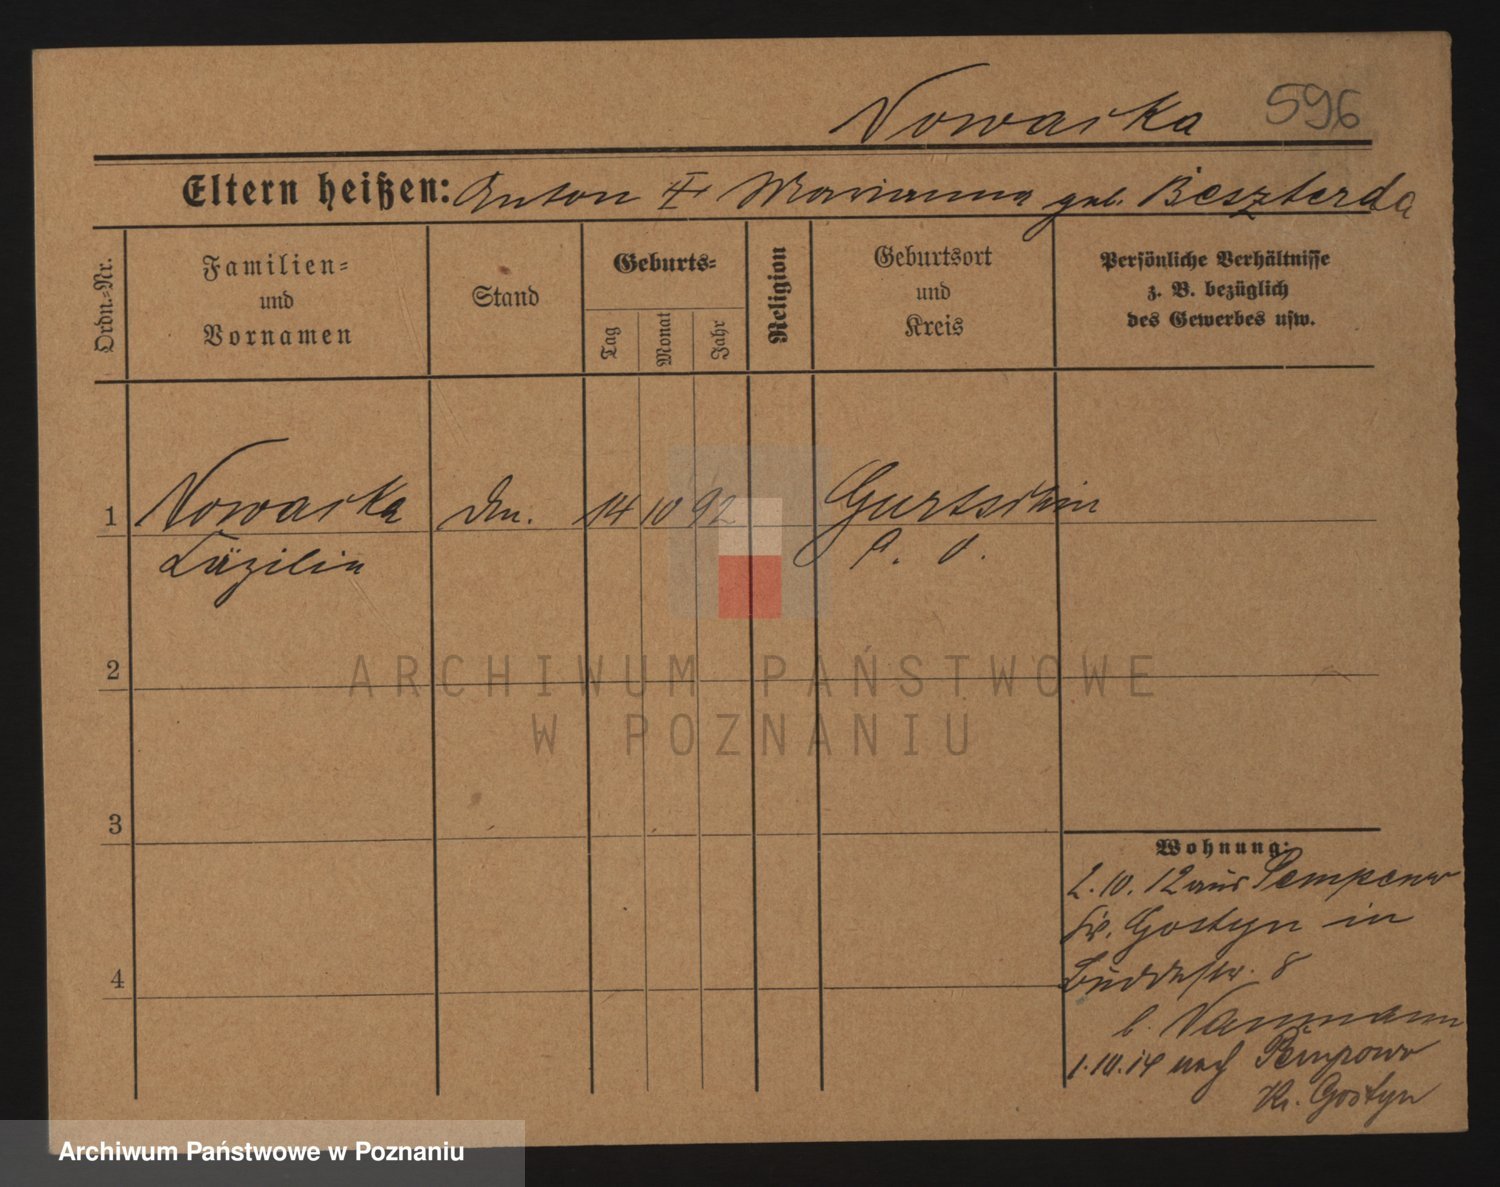 Nowacka 596
Eltern heißen: Anton & Marianna geb. Beszterda
Ordn.-Nr.
Familien-
und
Vornamen
Stand
Geburts-
Tag
Monat
Jahr
Religion
Geburtsort
und
Kreis
Persönliche Verhältnisse
z. B. bezüglich
des Gewerbes usw.
1 Nowacka 14 10 92
Cäzilia
2
3
4
Wohnung:
2.10.12 aus Pempowo
Kr. Gostyn in
8
b. Naumann
1.10.14 nach Pempowo
Kr. Gostyn
ARCHIWUM PAŃSTWOWE
W POZNANIU
Archiwum Państwowe w Poznaniu